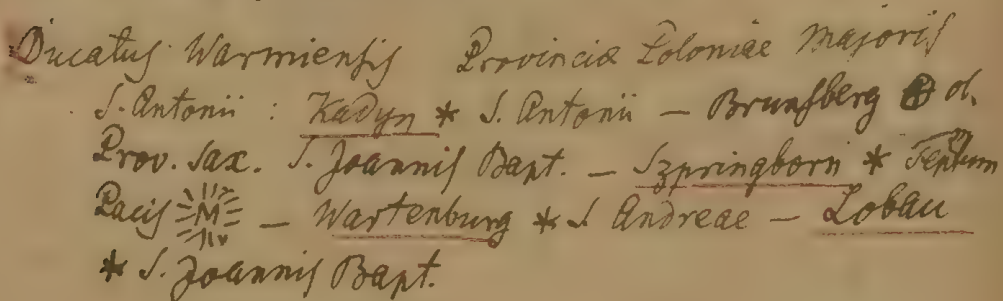 Ducatus Warmiensis Provinciæ Poloniae Majoris
S. Antonii : Kadyn * S. Antonii — Brunsberg ol.
Prov. Sax. S. Joannis Bapt. — Szpringborn * Templum
Pacis M — Wartenburg * S. Andreae — Lobau
* S. Joannis Bapt.